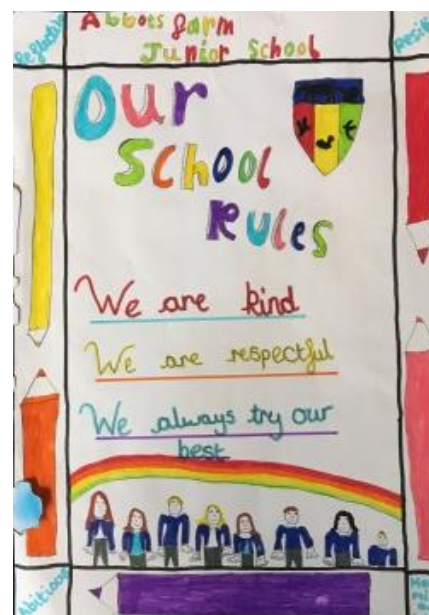 Abbots farm
Junior School
Our
School
Rules
We are kind
We are respectful
We always try our
best
Abitious